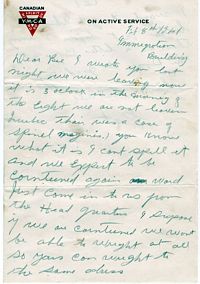 CANADIAN
Y.M.C.A.
ON ACTIVE SERVICE
Feb 8th 1941
Immigration
Building
Dear Sue I wrote you last
night we were leaving now
it is 3 oclock in the morning &
the light we are not leaven
turbic thair was a case of
Spinel maginis, you know
what it is I cant spell it
and we expect to be
corntined again word
Just come in to us from
the Head Quarters I supose
if we are corntined we wont
be able to wright at all
so you can wright to
the same adress